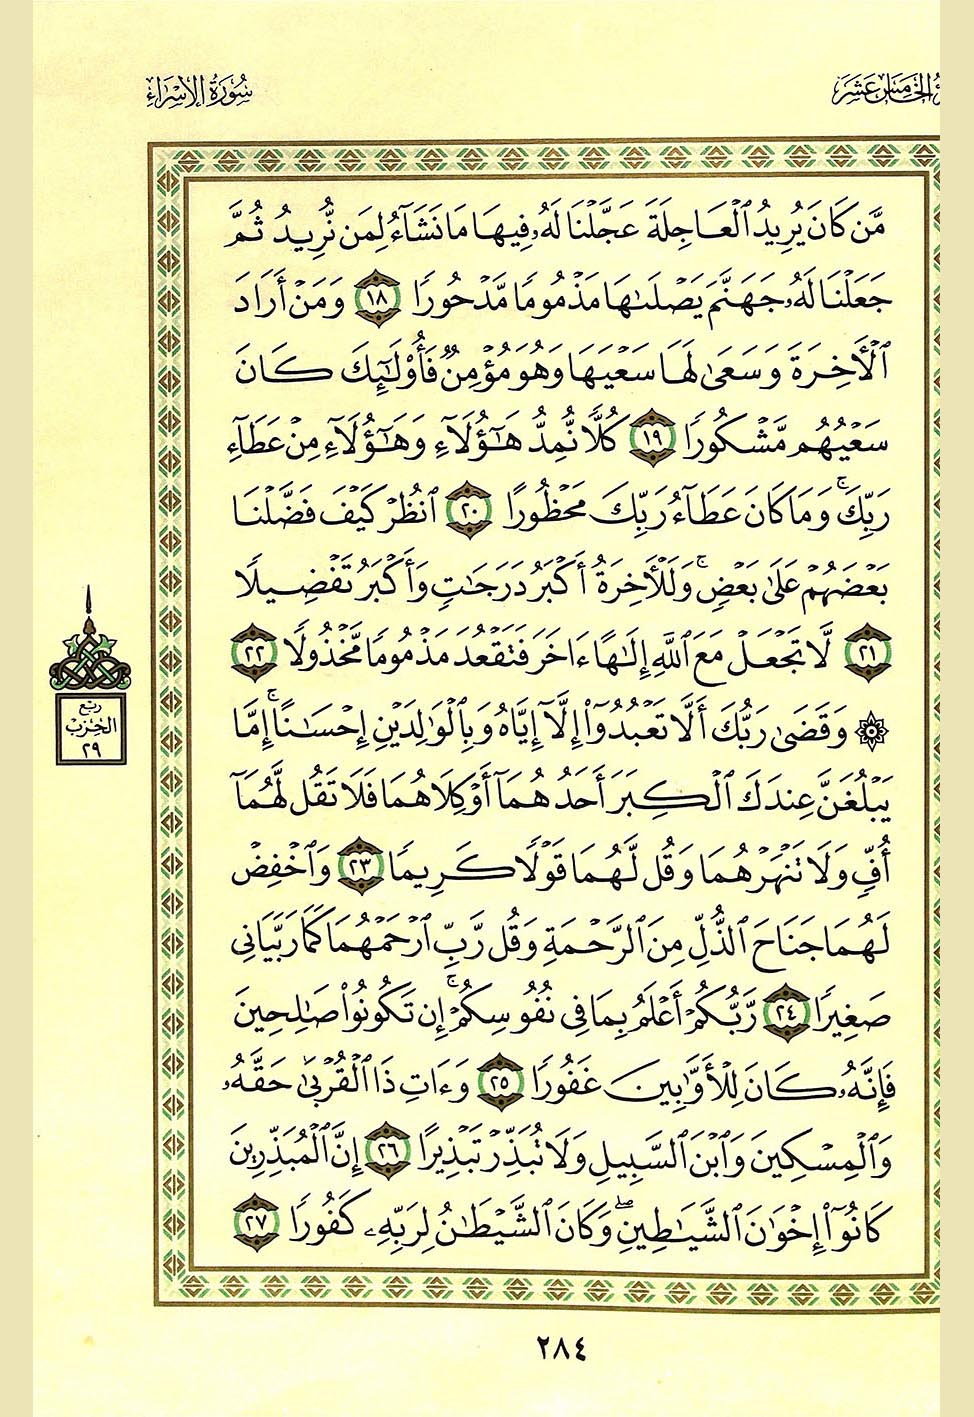 الخامس عشر
سُورَةُ الإِسْرَاءِ
مَّن كَانَ يُرِيدُ ٱلْعَاجِلَةَ عَجَّلْنَا لَهُۥ فِيهَا مَا نَشَآءُ لِمَن نُّرِيدُ ثُمَّ
جَعَلْنَا لَهُۥ جَهَنَّمَ يَصْلَىٰهَا مَذْمُومًا مَّدْحُورًا ١٨ وَمَنْ أَرَادَ
ٱلْأَخِرَةَ وَسَعَىٰ لَهَا سَعْيَهَا وَهُوَ مُؤْمِنٌ فَأُوْلَٰٓئِكَ كَانَ
سَعْيُهُم مَّشْكُورًا ١٩ كُلًّا نُّمِدُّ هَٰٓؤُلَآءِ وَهَٰٓؤُلَآءِ مِنْ عَطَآءِ
رَبِّكَ ۚ وَمَا كَانَ عَطَآءُ رَبِّكَ مَحْظُورًا ٢٠ ٱنظُرْ كَيْفَ فَضَّلْنَا
بَعْضَهُمْ عَلَىٰ بَعْضٍ ۚ وَلَلْأَخِرَةُ أَكْبَرُ دَرَجَٰتٍ وَأَكْبَرُ تَفْضِيلًا
٢١ لَّا تَجْعَلْ مَعَ ٱللَّهِ إِلَٰهًا ءَاخَرَ فَتَقْعُدَ مَذْمُومًا مَّخْذُولًا ٢٢
۞ وَقَضَىٰ رَبُّكَ أَلَّا تَعْبُدُوٓا۟ إِلَّآ إِيَّاهُ وَبِٱلْوَٰلِدَيْنِ إِحْسَٰنًا ۚ إِمَّا
يَبْلُغَنَّ عِندَكَ ٱلْكِبَرَ أَحَدُهُمَآ أَوْ كِلَاهُمَا فَلَا تَقُل لَّهُمَآ
أُفٍّ وَلَا تَنْهَرْهُمَا وَقُل لَّهُمَا قَوْلًا كَرِيمًا ٢٣ وَٱخْفِضْ
لَهُمَا جَنَاحَ ٱلذُّلِّ مِنَ ٱلرَّحْمَةِ وَقُل رَّبِّ ٱرْحَمْهُمَا كَمَا رَبَّيَانِى
صَغِيرًا ٢٤ رَّبُّكُمْ أَعْلَمُ بِمَا فِى نُفُوسِكُمْ ۚ إِن تَكُونُوا۟ صَٰلِحِينَ
فَإِنَّهُۥ كَانَ لِلْأَوَّٰبِينَ غَفُورًا ٢٥ وَءَاتِ ذَا ٱلْقُرْبَىٰ حَقَّهُۥ
وَٱلْمِسْكِينَ وَٱبْنَ ٱلسَّبِيلِ وَلَا تُبَذِّرْ تَبْذِيرًا ٢٦ إِنَّ ٱلْمُبَذِّرِينَ
كَانُوٓا۟ إِخْوَٰنَ ٱلشَّيَٰطِينِ ۖ وَكَانَ ٱلشَّيْطَٰنُ لِرَبِّهِۦ كَفُورًا ٢٧
ربع
الحزب
٢٩
٢٨٤